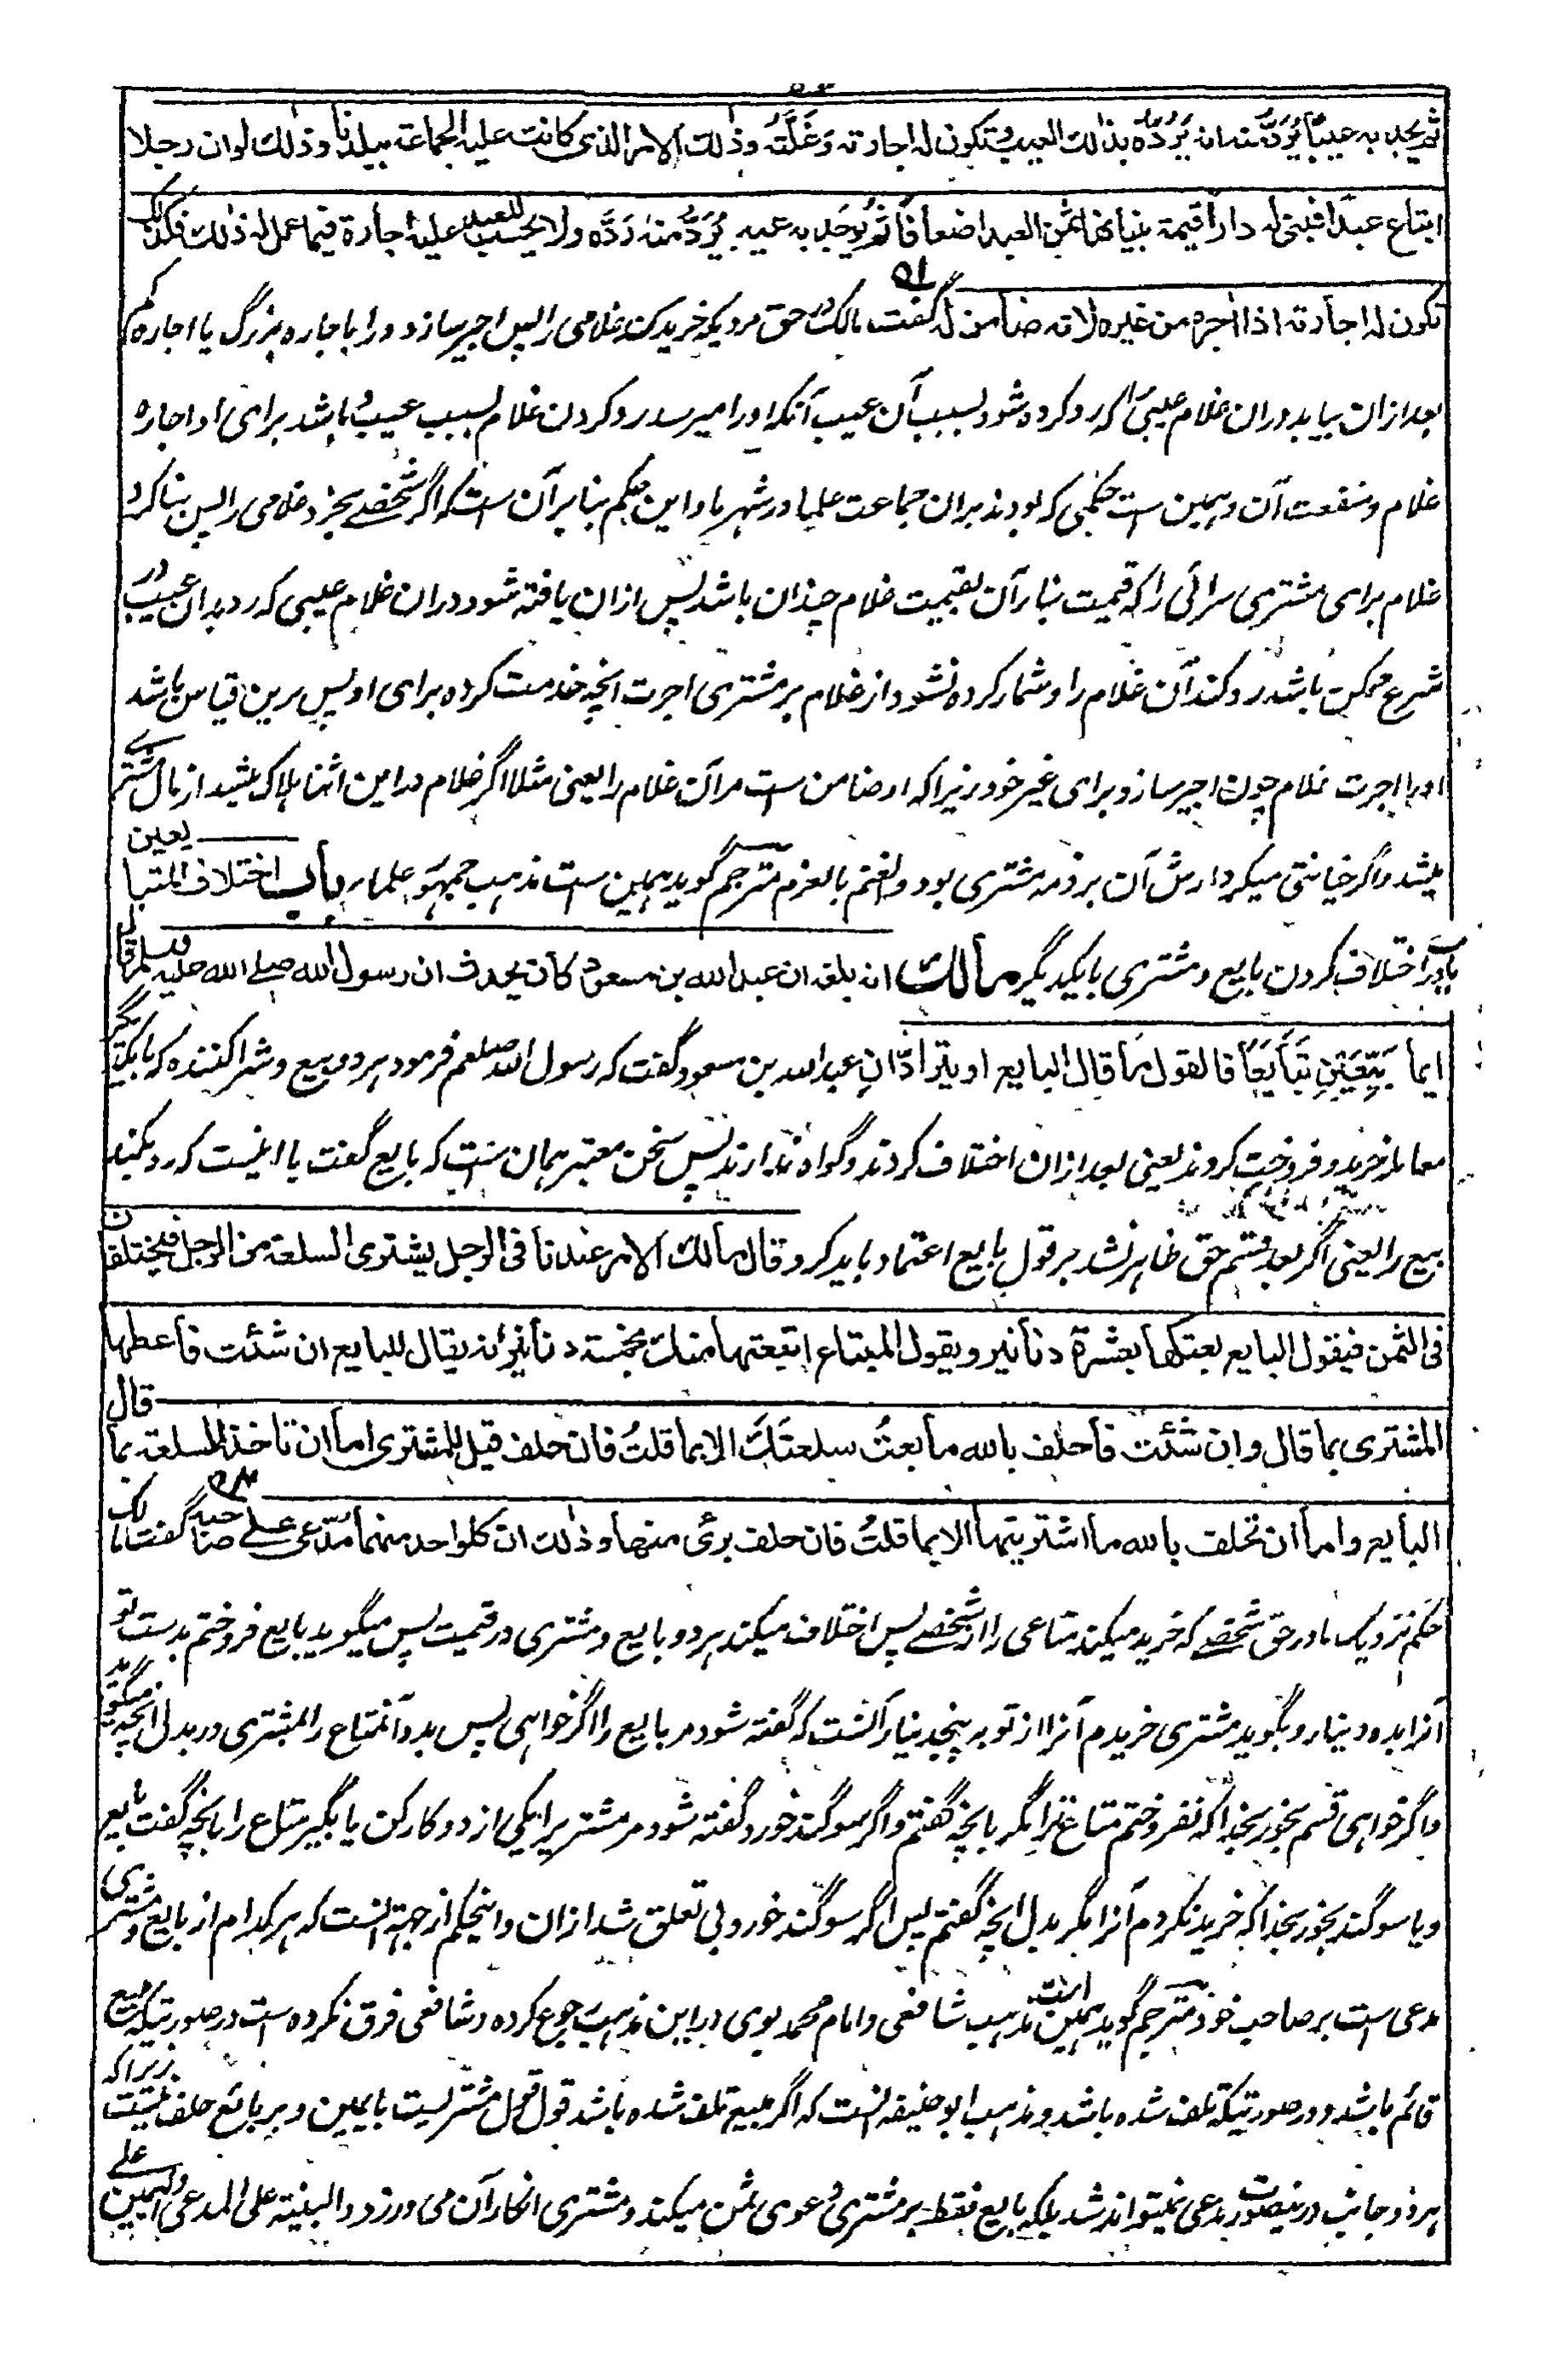 ثم يجد به عيباً يُرَدُّ منه انه يَرُدُّه بذلك العيب وتكون له اجارته وَغَلَّتُه وذلك الامر الذى كانت عليه الجماعة ببلدنا وذلك لو ان رجلا
ابتاع عبدًا فبنى له داراً قيمة بنيانها ثمن العبد اضعافا ثم يُوجد به عيب يُرَدُّ منه رَدَّه ولا يحسب للعبد عليه اجارة فيما عمل له ذلك فكذلك
تكون له اجارته اذا اٰجره من غيره لانه ضامن له گفت مالک در حق مردیکه خرید کند غلامی را پس اجیر سازد و را با جاره بزرگ یا اجاره کم
بعد ازان بیابد دران غلام عیبی را که رد کرده شود بسبب آن عیب آنکه اورا میرسد رد کردن غلام بسبب عیب و باشد برای او اجاره
غلام و منفعت آن و همین ست حکمی که بودند بران جماعت علما در شهر ما و این حکم بنا بر آن ست که اگر شخصے بخرد غلامی را پس بنا کرد
غلام برای مشتری سرائی را که قیمت بنا رآن بقیمت غلام چندان باشد پس ازان یافته شود دران غلام عیبی که رد بدان عیب در
شرع ممکن باشد رد کند آن غلام را و شمار کرده نشود از غلام بر مشتری اجرت انچه خدمت کرده برای او پس برین قیاس باشد
اورا اجرت غلام چون اجیر سازد برای غیر خود زیرا که او ضامن ست مر آن غلام را یعنی مثلا اگر غلام در این اثنا هلاک میشد از مال مشترے
میشد و اگر خیانتی میکرد ارش آن بر ذمه مشتری بود و الغنم بالغرم مترجم گوید همین ست مذهب جمهور علماء باب اختلاف المتبايعين
باب در اختلاف کردن بایع و مشتری بایکدیگر مالك انه بلغه ان عبد الله بن مسعود كان يحدث ان رسول الله صلے الله عليه وسلم قال
ايما بَيِّعَيْنِ تَبَايَعَا فالقول ما قال البايع او يترادّانِ عبد الله بن مسعود گفت که رسول الله صلعم فرمود هر دو بیع و شرا کننده که بایکدیگر
معامله خرید و فروخت کردند یعنی بعد ازان اختلاف کردند و گواه ندارند پس سخن معتبر همان ست که بایع گفت یا اینست که رد بکنند
بیع را یعنی اگر بعد قسم حق ظاهر نشد بر قول بایع اعتماد باید کرد وقال مالك الامر عندنا فى الرجل يشترى السلعة من الرجل فيختلفان
فى الثمن فيقول البايع بعتكها بعشرة دنانير ويقول المبتاع ابتعتها منك بخمسة دنانير انه يقال للبايع ان شئت فاعطها
المشترى بما قال وان شئت فاحلف بالله ما بعتُ سلعتَكَ الا بما قلتُ فان حلف قيل للمشترى اما ان تاخذ السلعة بما قال
البايع واما ان تحلف بالله ما اشتريتها الا بما قلتُ فان حلف برئ منها وذلك ان كل واحد منهما مُدّعى على صاحبه گفت مالک
حکم نزدیک ما در حق شخصے که خرید میکند متاعی را از شخصے پس اختلاف میکند هر دو بایع و مشتری در قیمت پس میگوید بایع فروختم بدست تو
آنرا بده دینار و بگوید مشتری خریدم آنرا از تو به پنجدینار آنست که گفته شود مر بایع را اگر خواهی پس بده آنمتاع را بمشتری در بدل انچه میگوید
و اگر خواهی قسم بخور بخدا که نفروختم متاع ترا مگر بانچه گفتم و اگر سوگند خورد گفته شود مر مشتریرا یکی از دو کار کن یا بگیر متاع را بانچه گفت بایع
و یا سوگند بخور بخدا که خرید نکردم آنرا مگر بدل انچه گفتم پس اگر سوگند خورد بی تعلق شد ازان و اینحکم از جهة آنست که هر کدام از بایع و مشتری
مدعی ست بر صاحب خود مترجم گوید همین ست مذهب شافعی و امام محمد بوی در این مذهب رجوع کرده و شافعی فرق نکرده ست در صورتیکه مبیع
قائم باشد و در صورتیکه تلف شده باشد و مذهب ابو حنیفه آنست که اگر مبیع تلف شده باشد قول قول مشتریست بایمین و بر بائع حلف نیست زیرا که
هر دو جانب در ینصورت مدعی نمیتواند شد بلکه بایع فقط بر مشتری دعوی ثمن میکند و مشتری انکار آن می ورزد و البینة على المدعى واليمين على